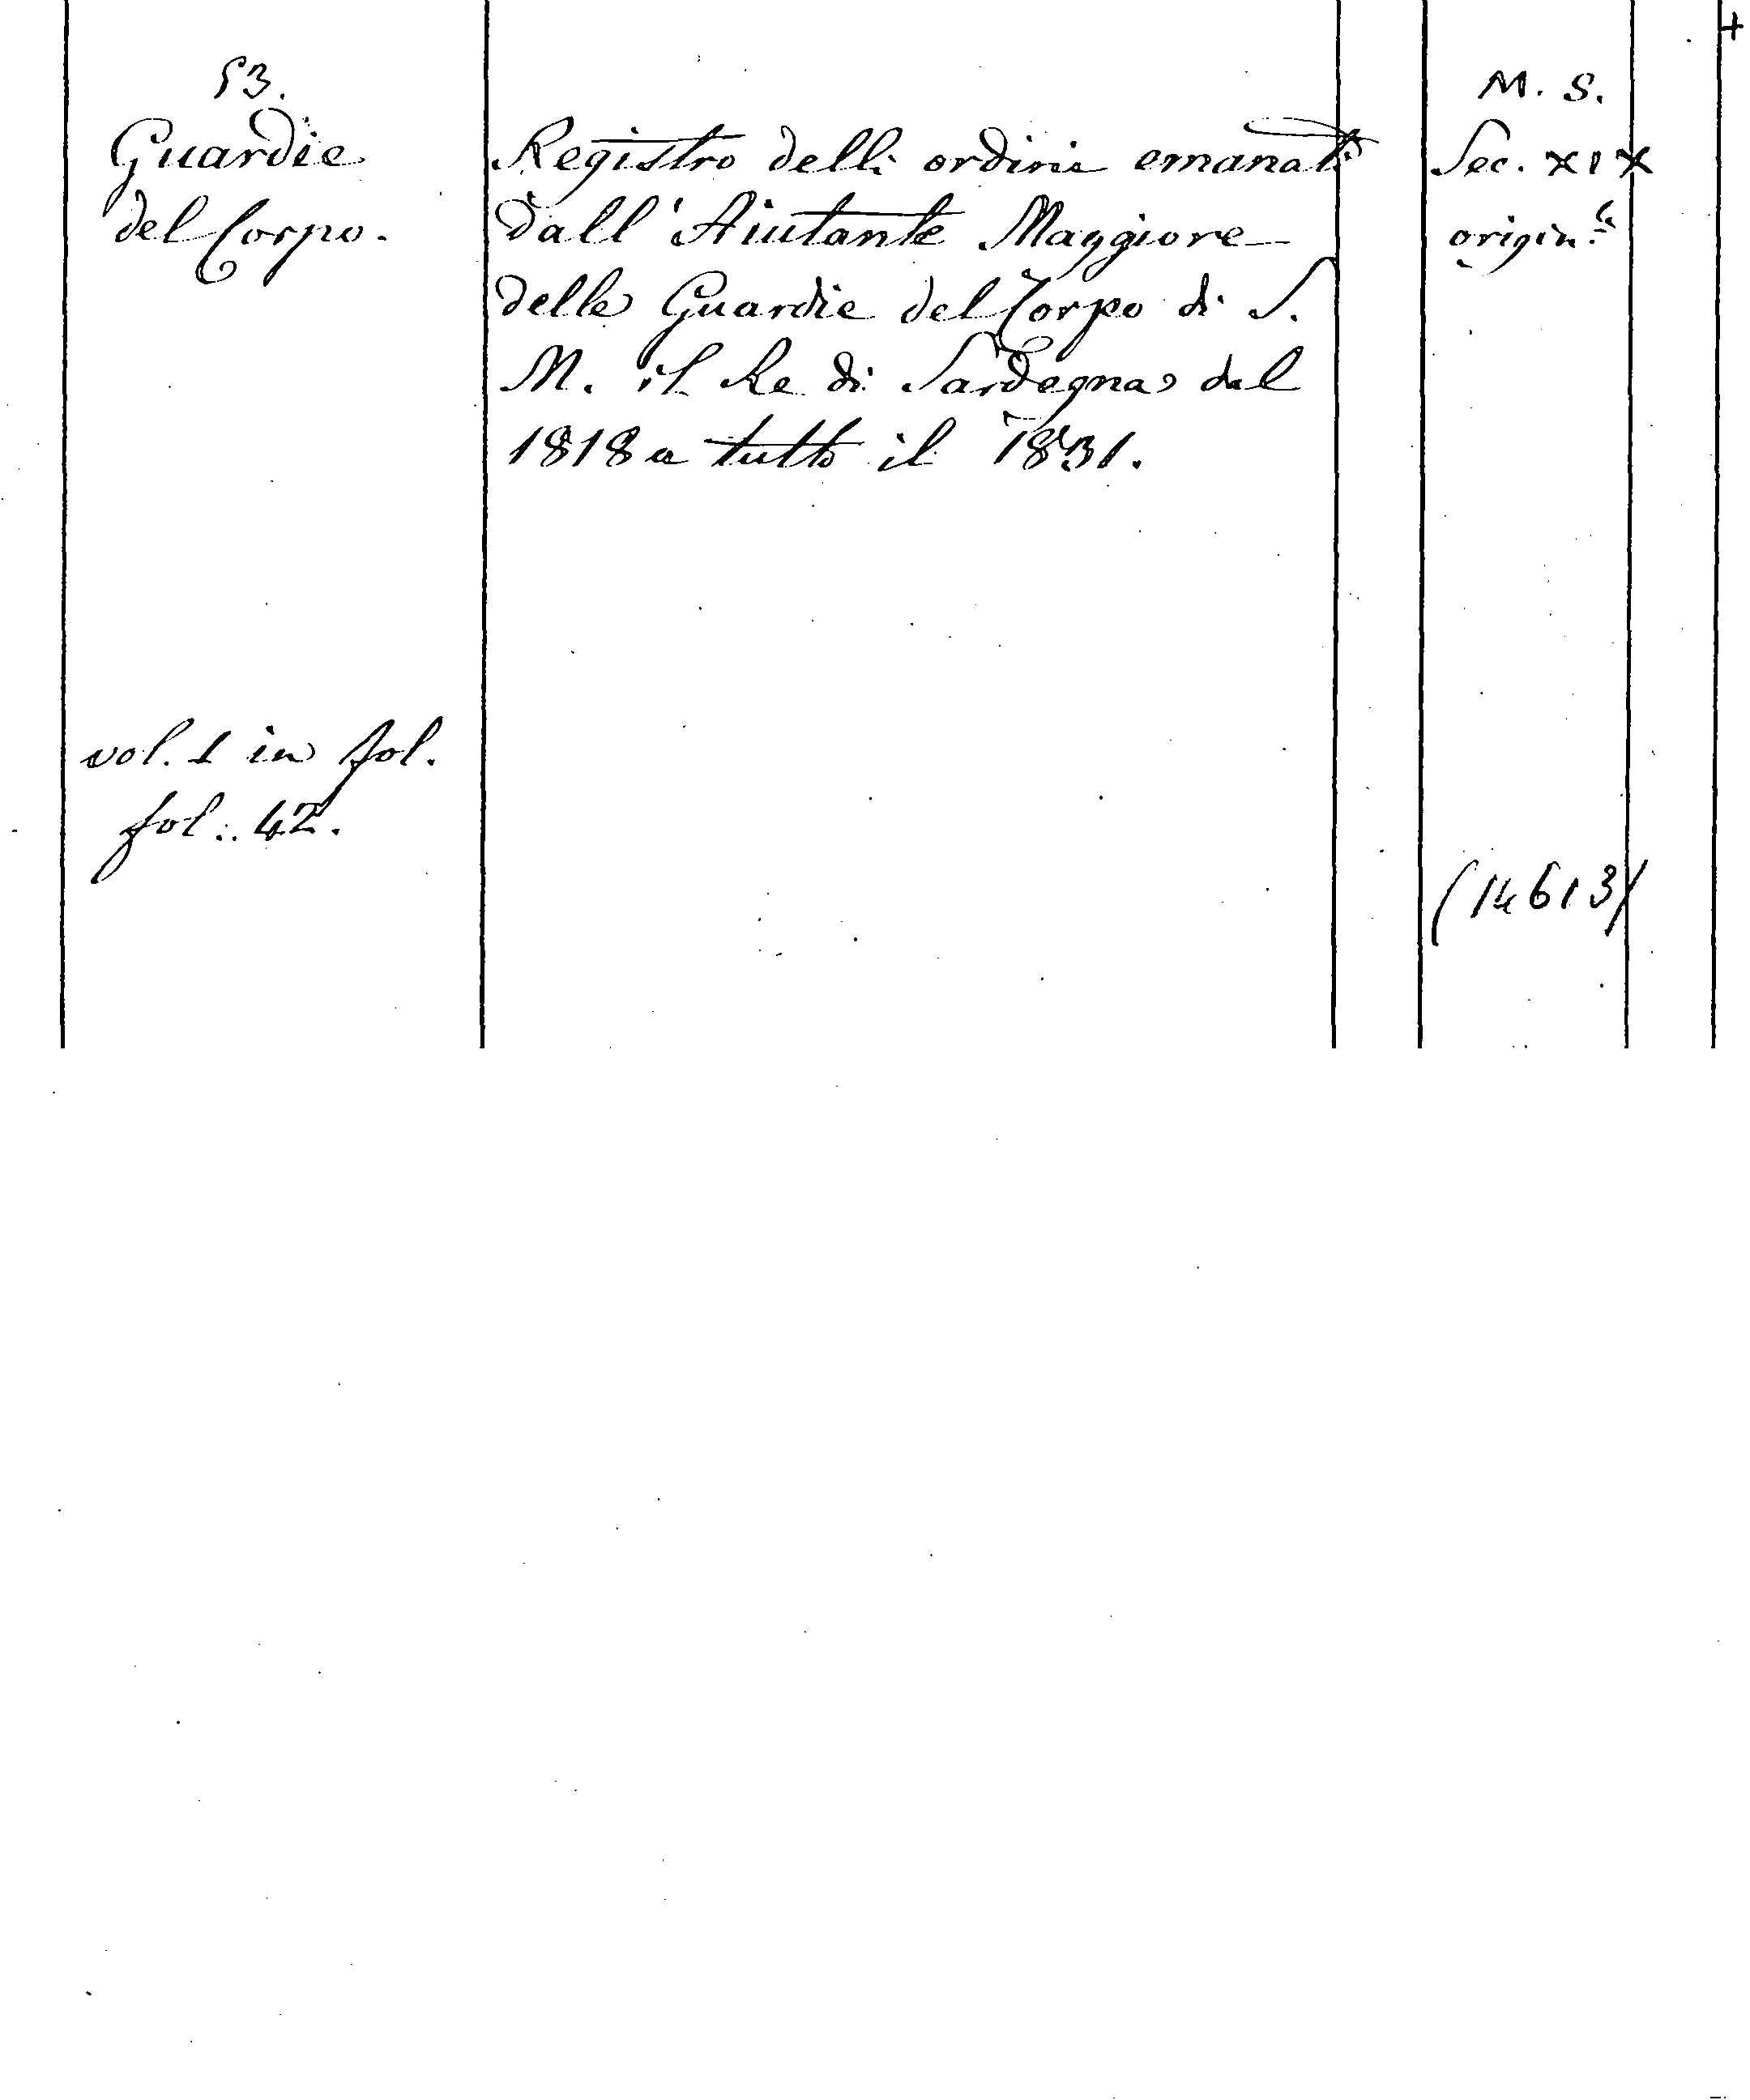 53.
Guardie
del Corpo.
vol. 1 in fol.
fol. 42.
Registro delli ordini emanati
dall'Aiutante Maggiore
delle Guardie del Corpo di S.
M. il Re di Sardegna dal
1818 a tutto il 1831.
M. S.
Sec. XIX
origin.le
(14613)
+